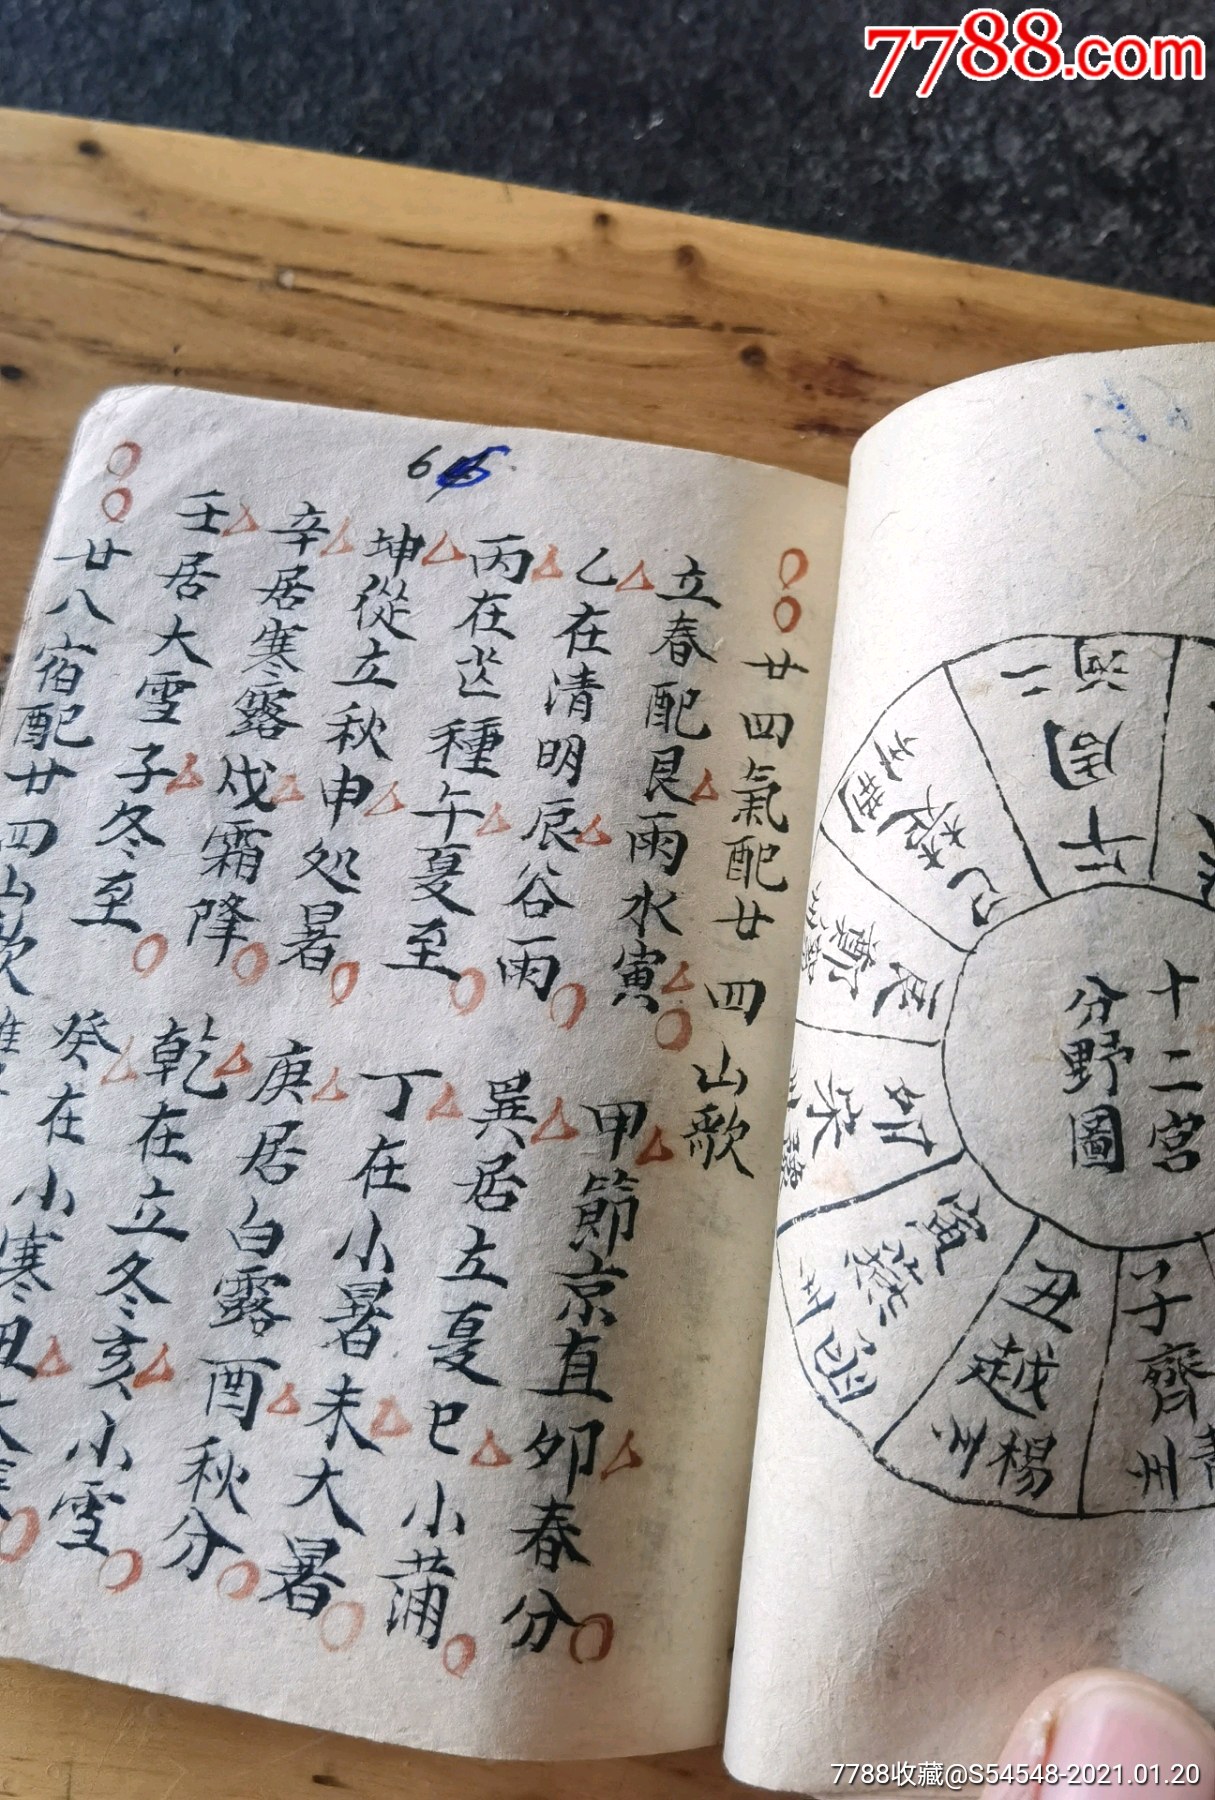 7788.com
十二宮
分野圖
午周河三
巳楚
辰鄭
卯宋
寅燕幽州
丑越楊州
子齊青州
65
廿四氣配廿四山歌
立春配艮雨水寅 甲節京直卯春分
乙在清明辰谷雨 巽居立夏巳小蒲
丙在芒種午夏至 丁在小暑未大暑
坤從立秋申处暑 庚居白露酉秋分
辛居寒露戍霜降 乾在立冬亥小雪
壬居大雪子冬至 癸在小寒丑大寒
廿八宿配廿四山歌
7788收藏@S54548-2021.01.20